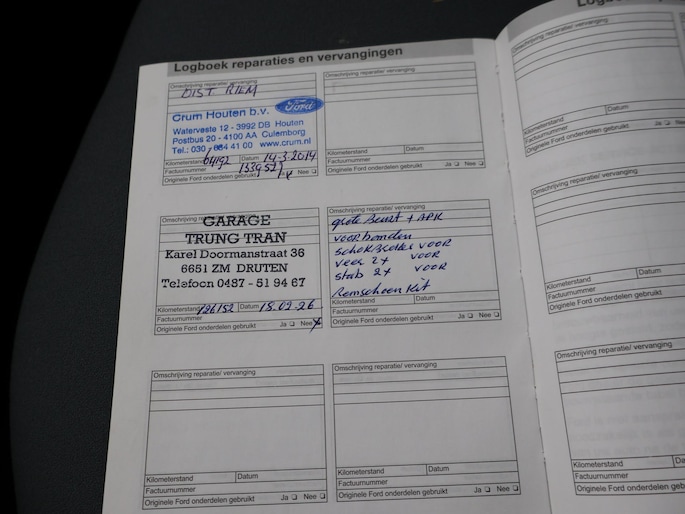 Logboek reparaties en vervangingen
Omschrijving reparatie/ vervanging
DIST RIEM
Crum Houten b.v.
Ford
Waterveste 12 - 3992 DB Houten
Postbus 20 - 4100 AA Culemborg
Tel.: 030 - 41 00 www.crum.nl
Kilometerstand 64192 Datum 14-3-2014
Factuurnummer 1339521
Originele Ford onderdelen gebruikt Ja Nee
Omschrijving reparatie/ vervanging
Kilometerstand Datum
Factuurnummer
Originele Ford onderdelen gebruikt Ja Nee
Omschrijving vervanging
GARAGE
TRUNG TRAN
Karel Doormanstraat 36
6651 ZM DRUTEN
Telefoon 0487 - 51 94 67
Kilometerstand 126152 Datum 15.02.26
Factuurnummer
Originele Ford onderdelen gebruikt Ja Nee
Omschrijving reparatie/ vervanging
grote Beurt + APK
voorbanden
schokbreker voor
veer 2x voor
stab 2x voor
Remschoen Kit
Kilometerstand Datum
Factuurnummer
Originele Ford onderdelen gebruikt Ja Nee
Omschrijving reparatie/ vervanging
Kilometerstand Datum
Factuurnummer
Originele Ford onderdelen gebruikt Ja Nee
Omschrijving reparatie/ vervanging
Kilometerstand Datum
Factuurnummer
Originele Ford onderdelen gebruikt Ja Nee
Omschrijving reparatie/ vervanging
Kilometerstand Datum
Factuurnummer
Originele Ford onderdelen gebruikt
Omschrijving reparatie/ vervanging
Kilometerstand
Factuurnummer
Originele Ford onderdelen gebruikt
Omschrijving reparatie/ vervanging
Kilometerstand
Factuurnummer